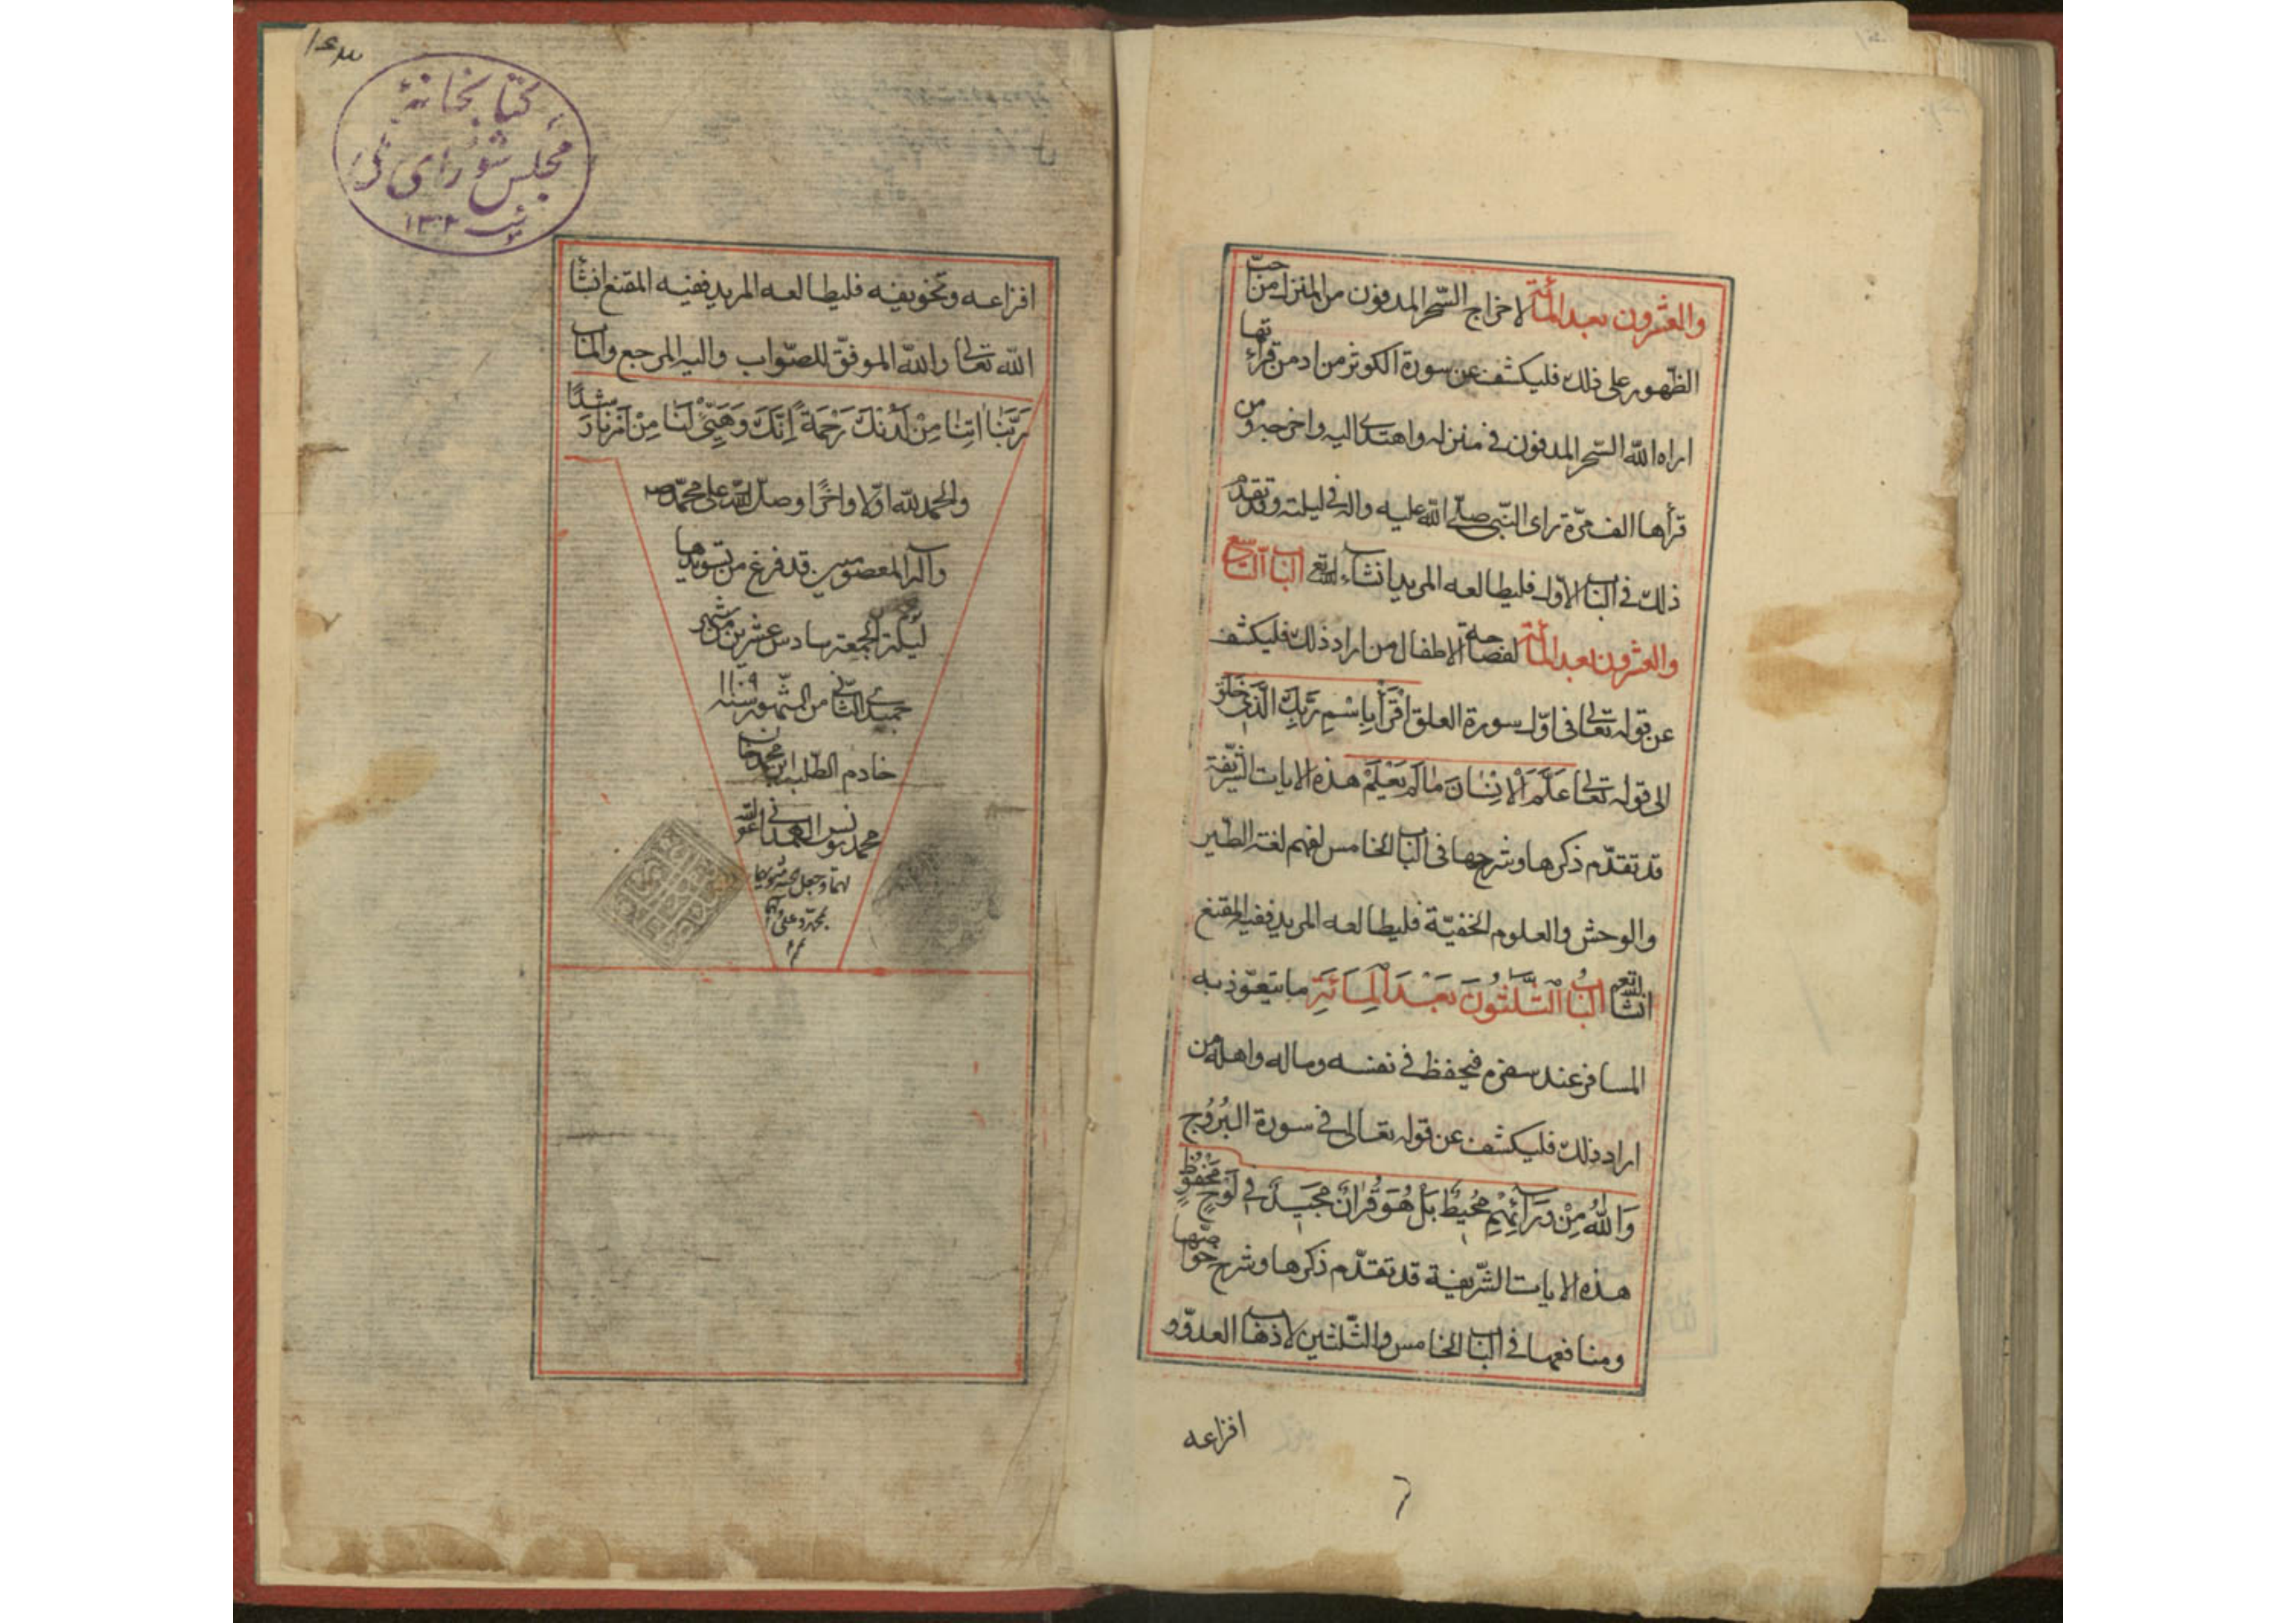 والعشرون بعد المائة لاخراج السّحر المدفون من المنزل من حبّ
الظّهور على ذلك فليكشف عن سورة الكوثر من ادمن قراءتها
اراه اللّه السّحر المدفون فى منزله واهتدى اليه واخرجه ومن
قرأها الف مرّة راى النّبى صلّى اللّه عليه واله فى ليلته وقد تقدم
ذلك فى الباب الاوّل فليطالعه المريد انشاء اللّه تع الباب التاسع
والعشرون بعد المائة لفصاحة الاطفال من اراد ذلك فليكشف
عن قوله تعالى فى اوّل سورة العلق اقْرَأْ بِاسْمِ رَبِّكَ الَّذى خَلَقَ
الى قوله تعالى عَلَّمَ الْاِنْسَانَ مَا لَمْ يَعْلَمْ هذه الايات الشّريفة
قد تقدّم ذكرها وشرحها فى الباب الخامس لفهم لغة الطّير
والوحش والعلوم الخفيّة فليطالعه المريد ففيه المقنع
انشا اللّه تع البابُ الثَّلثُونَ بَعْدَ الْمِائَةِ ما يتعوّذ به
المسافر عند سفره فيحفظ فى نفسه وماله واهله من
اراد ذلك فليكشف عن قوله تعالى فى سورة البُرُوج
وَاللّهُ مِنْ وَرَائِهِمْ مُحِيطٌ بَلْ هُوَ قُرْانٌ مَجِيدٌ فى لَوْحٍ مَحْفُوظٍ
هذه الايات الشّريفة قد تقدّم ذكرها وشرح خواصّها
ومنافعها فى الباب الخامس والثّلثين لاذهاب العدوّ و
افزاعه
كتابخانۀ
مجلس شورای ملی
١٣٠٢
افزاعه وتخويفه فليطالعه المريد ففيه المقنع انشا
اللّه تعالى واللّه الموفّق للصّواب واليه المرجع والماب
رَبَّنَا اتِنَا مِنْ لَدُنْكَ رَحْمَةً اِنَّكَ وَهَيِّئْ لَنَا مِنْ اَمْرِنَا رَشَدًا
والحمد للّه اوّلا واخرًا وصلّى اللّه على محمّد
وآله المعصومين قد فرغ من تسويدها
ليلة الجمعة سادس عشرين من شهر
جميدى الثانى من الشهور سنه ١١٠٩
خادم الطلبه ابن محمد خان
محمد يونس الهمدانى عفى اللّه